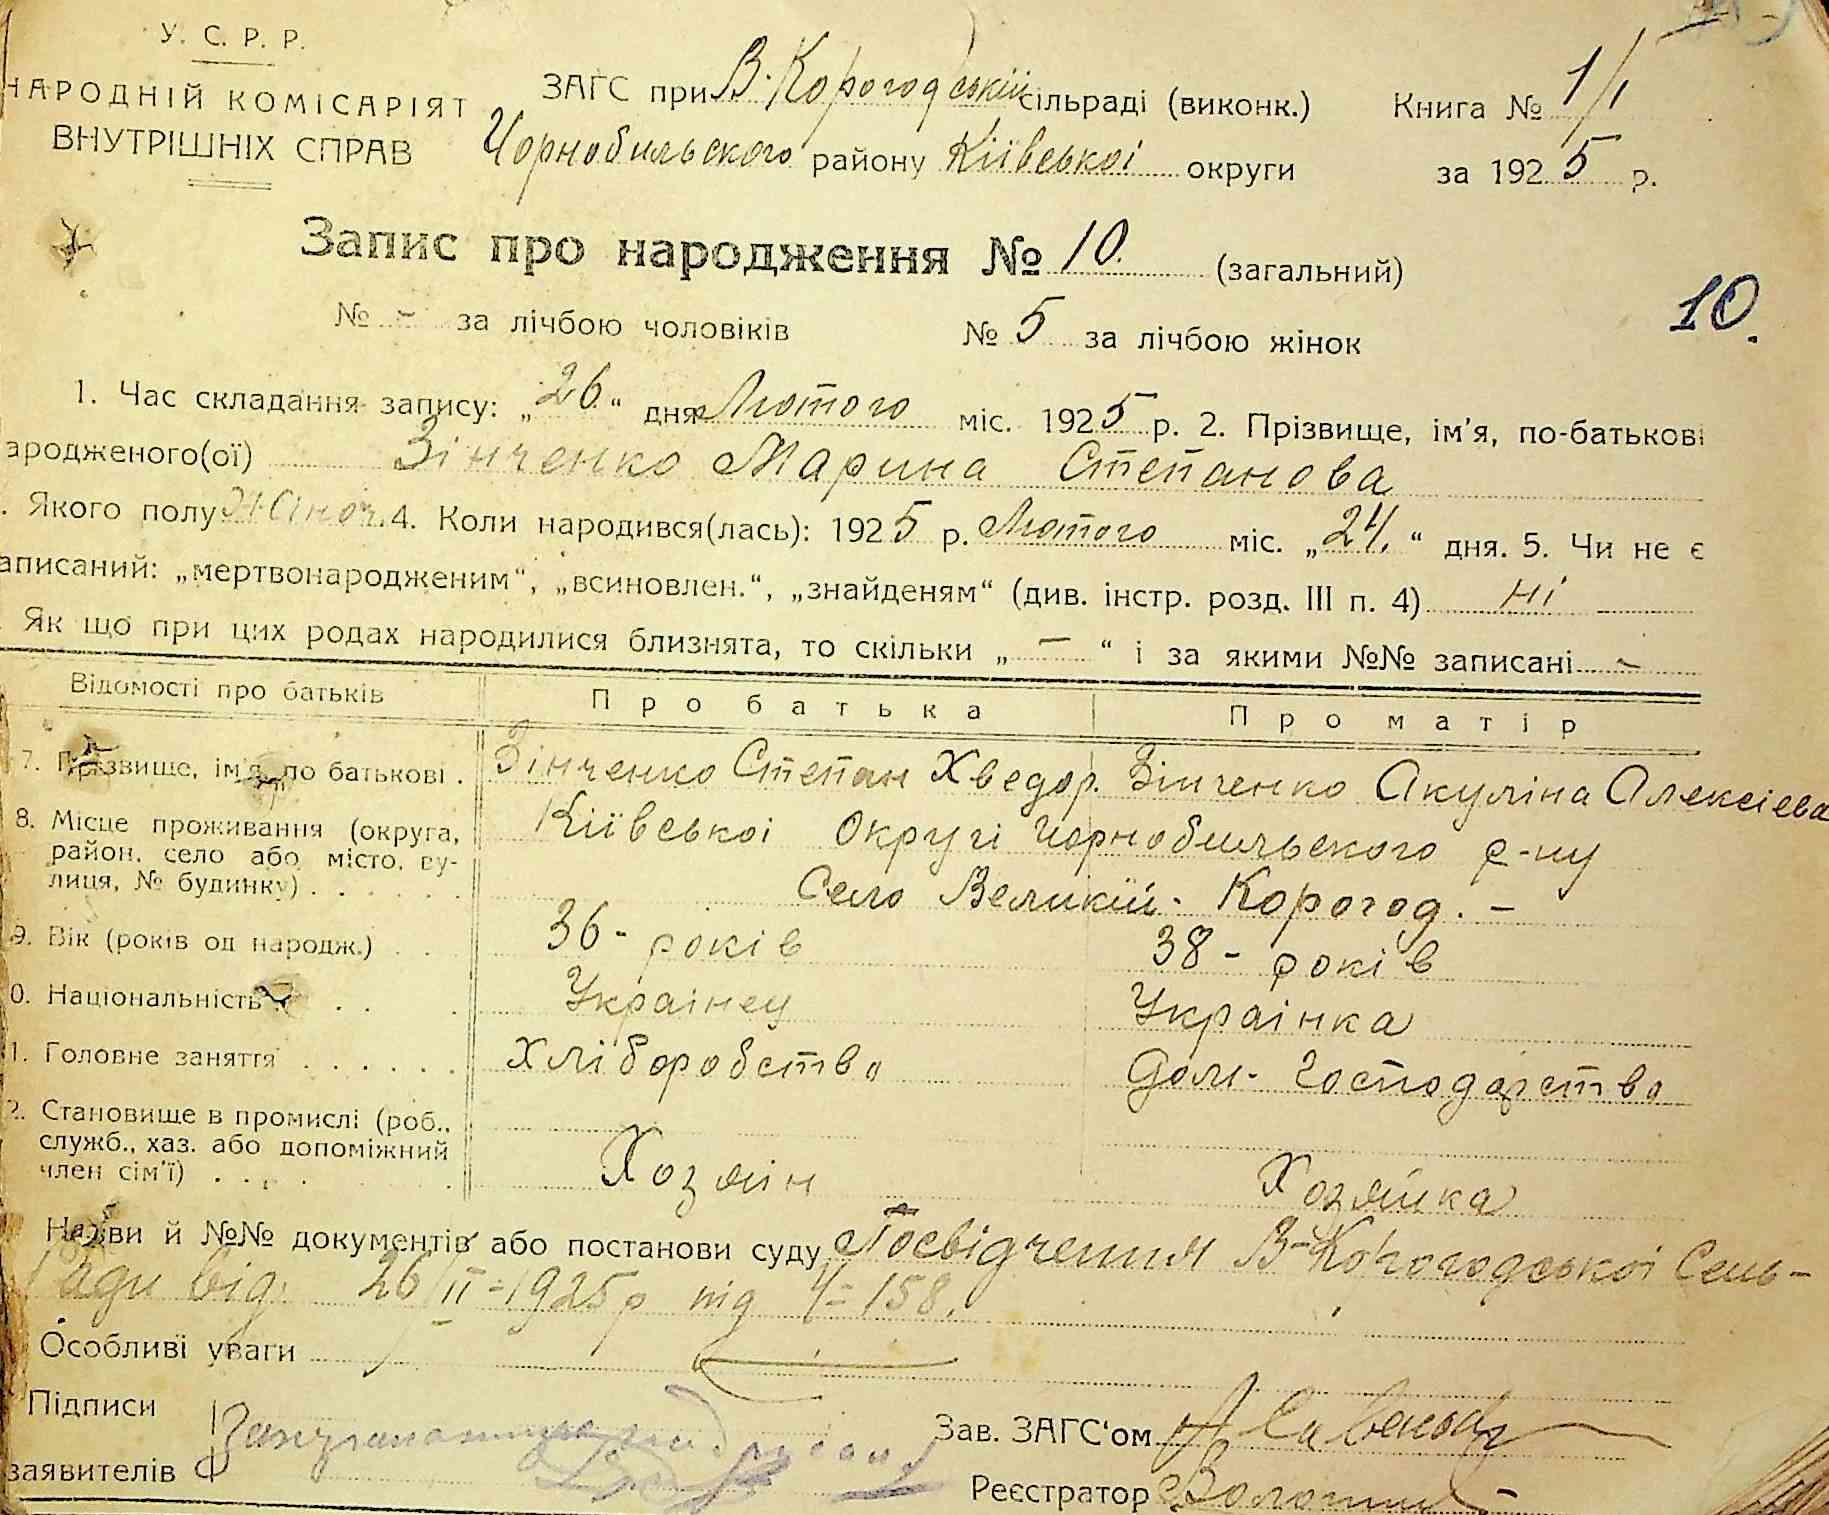 У. С. Р. Р.
НАРОДНІЙ КОМІСАРІЯТ
ВНУТРІШНІХ СПРАВ
ЗАГС при В. Корогодській сільраді (виконк.)
Чорнобильского району Кіївськоі округи
Книга № 1/1
за 1925 р.
Запис про народження № 10. (загальний)
10.
№ - за лічбою чоловіків № 5 за лічбою жінок
1. Час складання запису: „26“ дня Лютого міс. 1925 р. 2. Прізвище, ім'я, по-батькові
ародженого(ої) Зінченко Марина Степанова
. Якого полу Жіноч. 4. Коли народився(лась): 1925 р. Лютого міс. „24.“ дня. 5. Чи не є
аписаний: „мертвонародженим“, „всиновлен.“, „знайденям“ (див. інстр. розд. III п. 4) ні
. Як що при цих родах народилися близнята, то скільки „ — “ і за якими №№ записані -
Відомості про батьків Про батька Про матір
7. Прізвище, ім'я, по батькові . Зінченко Степан Хведор. Зінченко Акуліна Алексієва
8. Місце проживання (округа, район, село або місто, вулиця, № будинку) . Кіївськоі Округі Чорнобильського р-ну
Село Великій - Корогод. -
9. Вік (років од народж.) 36 - років 38 - років
0. Національність Украінец Украінка
1. Головне заняття Хліборобство Дом - Господарство
2. Становище в промислі (роб.,
служб., хаз. або допоміжний
член сім'ї) Хозяін Хозяйка
Назви й №№ документів або постанови суду Посвідчення В-Корогодськоі Сель-
Ради від 26/II - 1925 р під Ч= 158.
Особливі уваги
Підписи
заявителів
Зав. ЗАГС'ом
Реєстратор